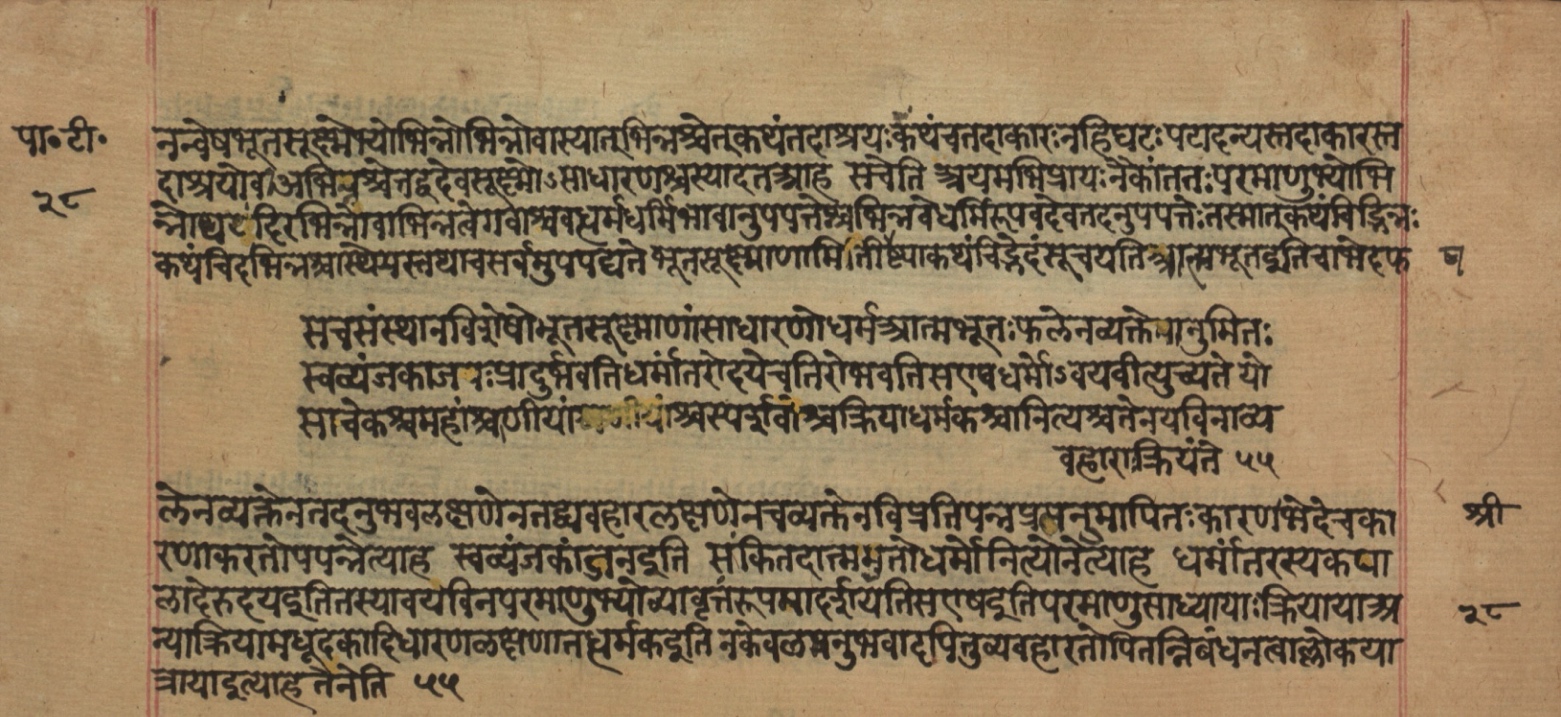 पा॰टी॰
२८
नन्वेषभूतसूक्ष्मेभ्योभिन्नोभिन्नोवास्यात्भिन्नश्चेत्कथंतदाश्रयःकथंचतदाकारःनहिघटःपटादन्यस्तदाकारस्त
दाश्रयोवाअभिन्नश्चेत्तद्वदेवसूक्ष्मोऽसाधारणश्चस्यादतआह सचेति अयमभिप्रायःनैकांततःपरमाणुभ्योभि
न्नोघटादिरभिन्नोवाभिन्नत्वेगवाश्ववद्धर्मधर्मिभावानुपपत्तेःअभिन्नत्वेधर्मिरूपवदेवतदनुपपत्तेःतस्मात्कथंचिद्भिन्नः
कथंचिदभिन्नश्चास्थेयस्तथाचसर्वमुपपद्यते भूतसूक्ष्माणामितिषष्ट्याकथंचिद्भेदंसूचयतिआत्मभूतइतिचाभेदंफ
सचसंस्थानविशेषोभूतसूक्ष्माणांसाधारणोधर्मआत्मभूतःफलेनव्यक्तेनानुमितः
स्वव्यंजकांजनःप्रादुर्भवतिधर्मांतरोदयेचतिरोभवतिसएषधर्मोऽवयवीत्युच्यते यो
सावेकश्चमहांश्चाणीयांश्चस्पर्शवांश्चक्रियाधर्मकश्चानित्यश्चतेनावयविनाव्य
वहाराःक्रियंते ५५
लेनव्यक्तेनतदनुभवलक्षणेनतद्व्यवहारलक्षणेनचव्यक्तेनविप्रतिपन्नंप्रत्यनुमापितःकारणभेदेचका
रणाकारतोपपन्नेत्याह स्वव्यंजकांजनइति संकितदात्मभूतोधर्मोनित्योनेत्याह धर्मांतरस्यकपा
लादेरुदयइतितस्यावयविनःपरमाणुभ्योव्यावृत्तंरूपमादर्शयतिसएषइतिपरमाणुसाध्यायाःक्रियायाअ
न्याक्रियामधूदकादिधारणळक्षणातद्धर्मकइति नकेवळमनुभवादपितुव्यवहारतोपितन्निबंधनत्वाल्लोकया
त्रायाइत्याहतेनेति ५५
श्री
२८